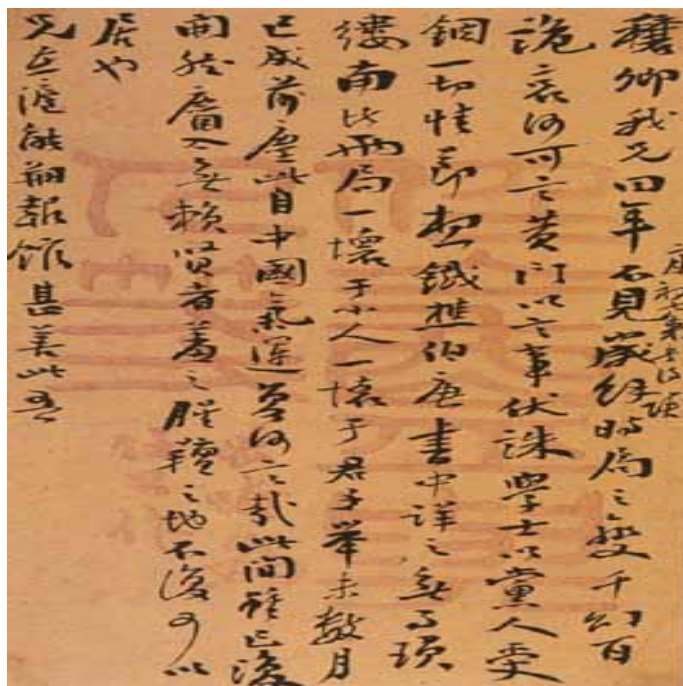 穰卿我兄四年不見歲經時局之變千幻百
詭哀何可言黄門以言事伏誅學士以黨人受
錮一切情節想鐵樵伯唐書中詳之無事瑣
縷南北兩局一壞于小人一壞于君子舉未數月
已成前塵此自中國氣運何言哉此間雖已復
開然麕入無賴賢者羞之腥羶之地不復可以
居也
兄在滬能報館甚善此吾